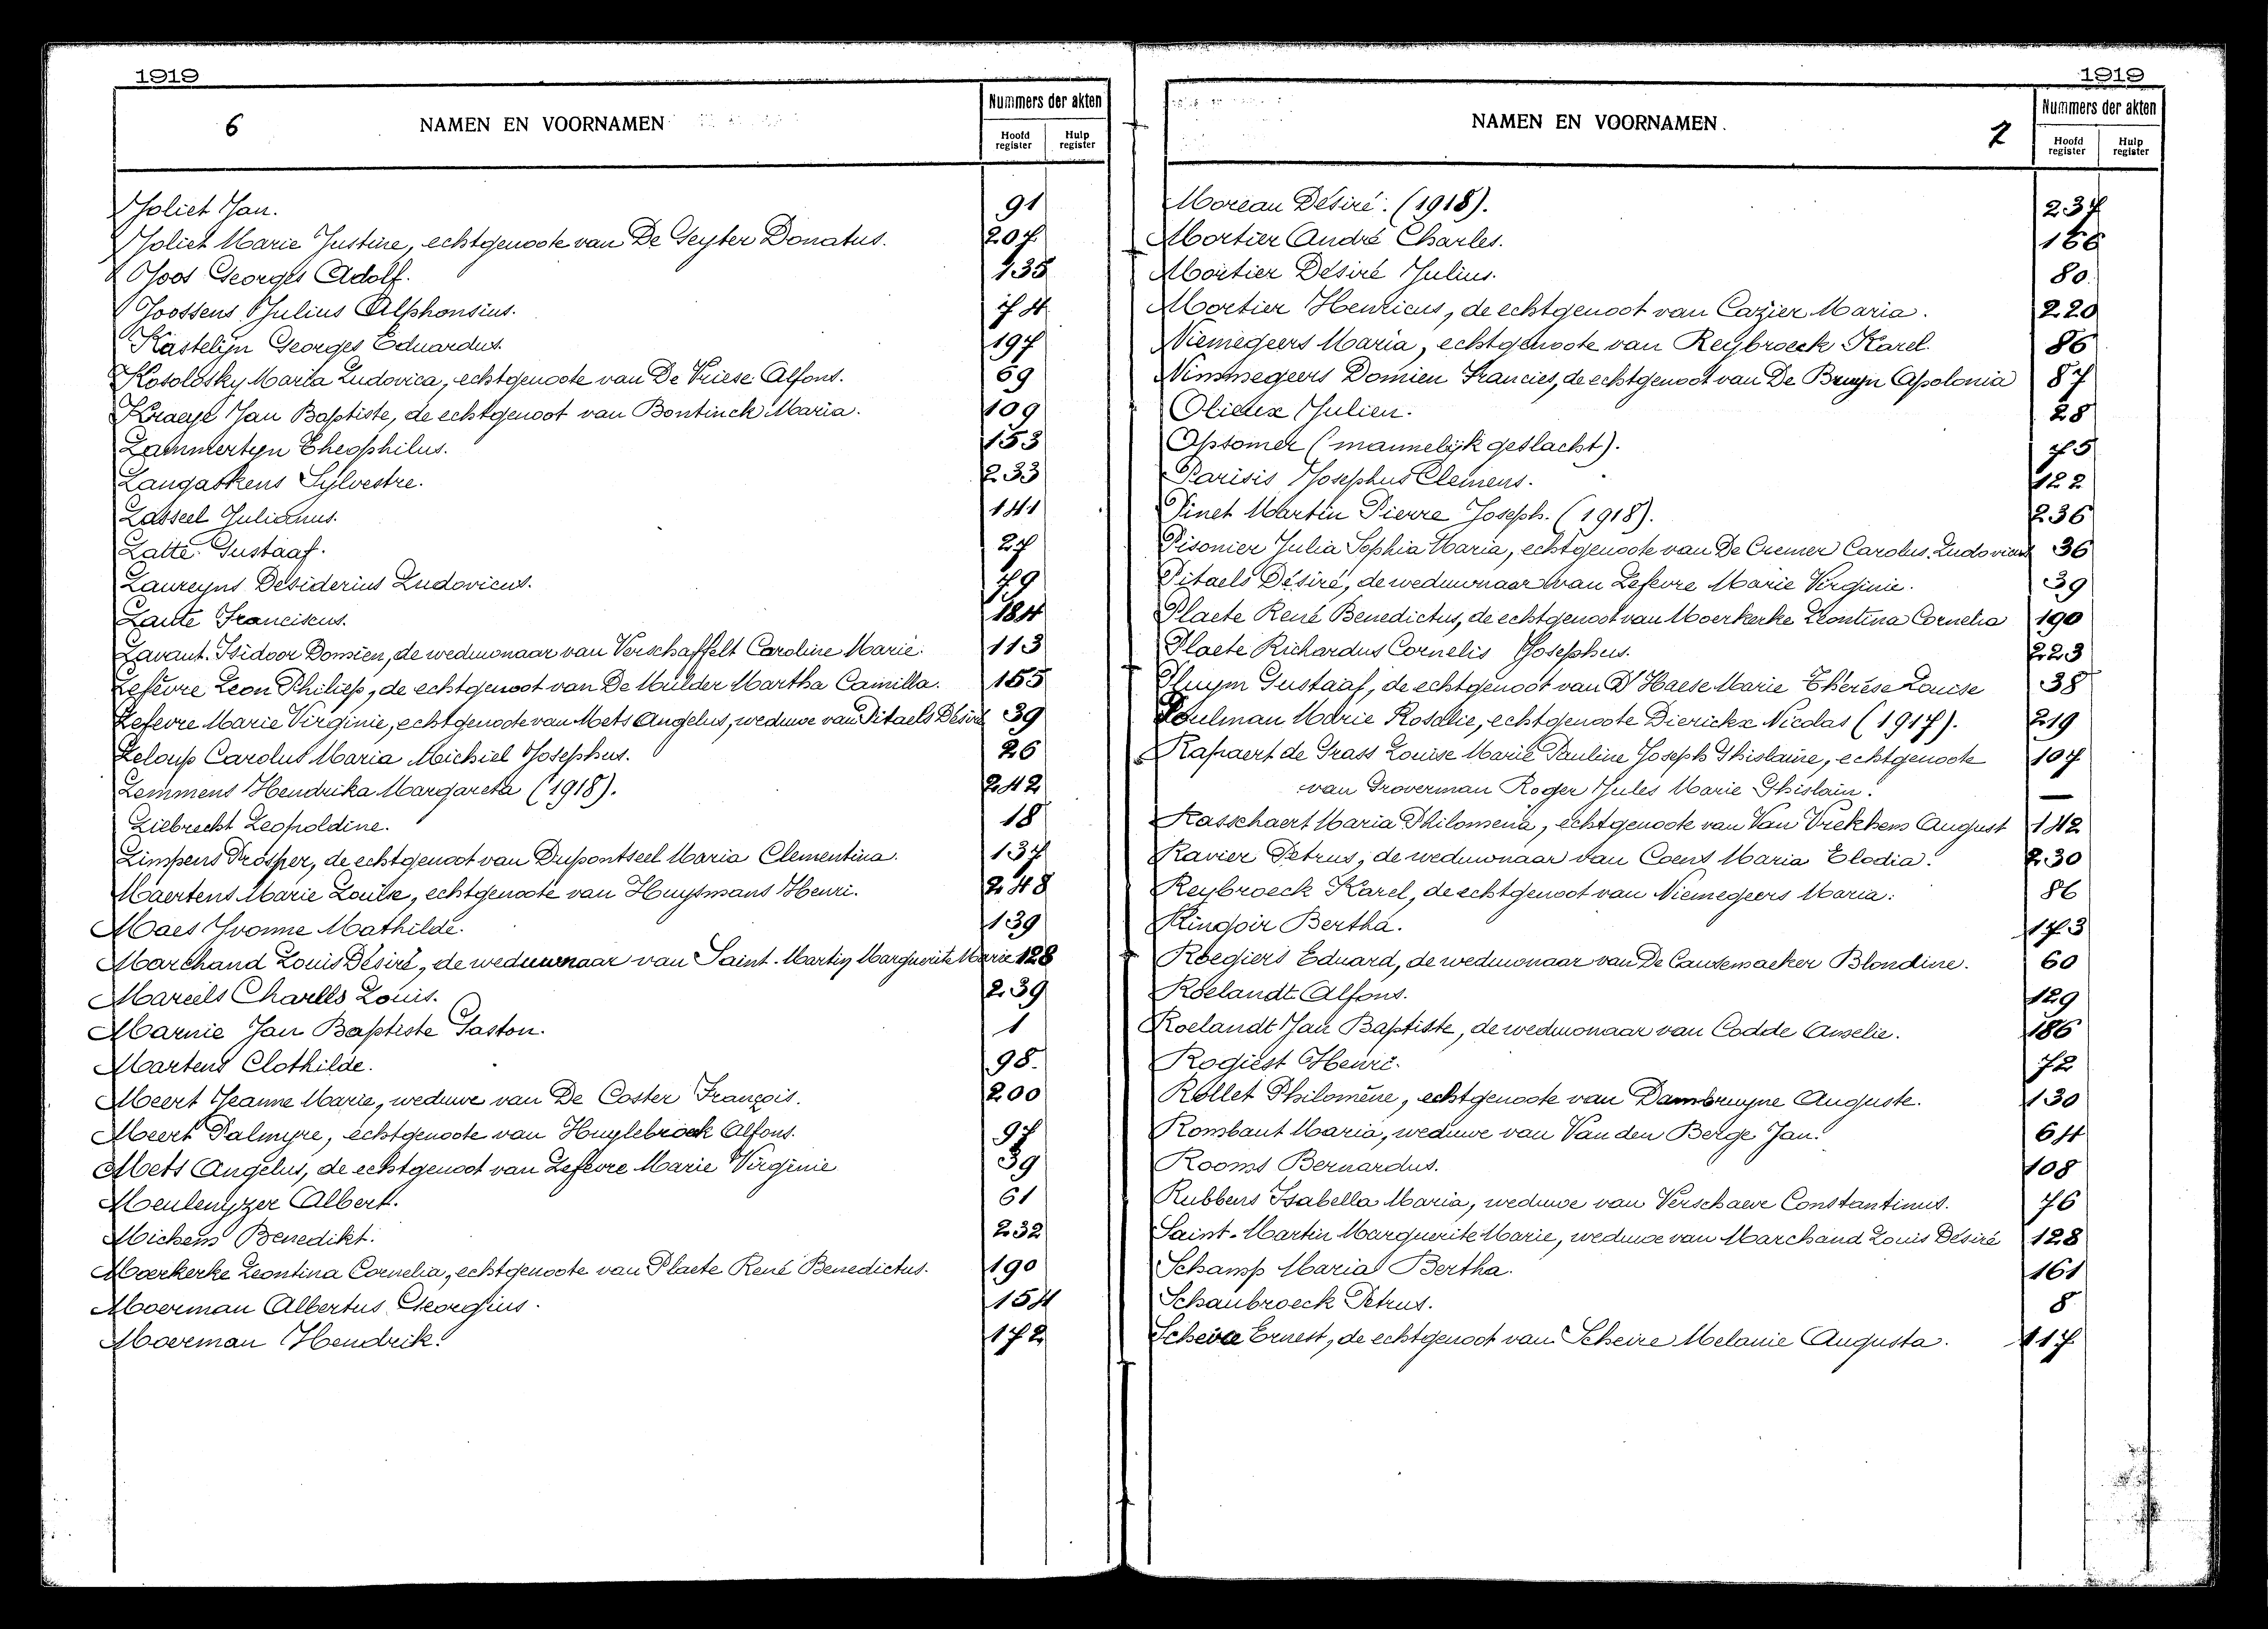 1919
6 NAMEN EN VOORNAMEN
Nummers der akten
Hoofd register Hulp register
Joliet Jan. 91
Joliet Marie Justine, echtgenoote van De Geyter Donatus. 207
Joos Georges Adolf. 135
Joossens Julius Alphonsius. 74
Kastelijn Georges Eduardus. 197
Kosolosky Maria Ludovica, echtgenoote van De Vriese Alfons. 69
Kraeye Jan Baptiste, de echtgenoot van Bontinck Maria. 109
Lammertyn Theophilus. 153
Langaskens Sylvestre. 233
Lasseel Julianus. 141
Latte Gustaaf. 27
Laureyns Desiderius Ludovicus. 79
Laute Franciscus. 184
Lavaut Isidoor Domien, de weduwnaar van Verschaffelt Caroline Marie. 113
Lefèvre Leon Philiep, de echtgenoot van De Mulder Martha Camilla. 155
Lefevre Marie Virginie, echtgenoote van Mets Angelus, weduwe van Pitaels Désiré 39
Leloup Carolus Maria Michiel Josephus. 26
Lemmens Hendrika Margareta (1918). 242
Liebrecht Leopoldine. 18
Limpens Prosper, de echtgenoot van Dupontseel Maria Clementina. 137
Maertens Marie Louise, echtgenoote van Huysmans Henri. 248
Maes Yvonne Mathilde. 139
Marchand Louis Désiré, de weduwnaar van Saint-Martin Marguerite Marie 128
Mareels Charles Louis. 239
Marnie Jan Baptiste Gaston. 1
Martens Clothilde. 98
Meert Jeanne Marie, weduwe van De Coster François. 200
Meert Palmyre, echtgenoote van Huylebroek Alfons. 97
Mets Angelus, de echtgenoot van Lefevre Marie Virginie 39
Meulenyzer Albert. 61
Michem Benedikt. 232
Moerkerke Leontina Cornelia, echtgenoote van Plaete René Benedictus. 190
Moerman Albertus Georgius. 154
Moerman Hendrik. 172
1919
NAMEN EN VOORNAMEN. 7
Nummers der akten
Hoofd register Hulp register
Moreau Désiré. (1918). 237
Mortier André Charles. 166
Mortier Désiré Julius. 80
Mortier Henricus, de echtgenoot van Cazier Maria. 220
Niemegeers Maria, echtgenoote van Reybroeck Karel. 86
Nimmegeers Domien Francies, de echtgenoot van De Bruyn Apolonia 87
Olieux Julien. 28
Opsomer (mannelijk geslacht). 75
Parisis Josephus Clemens. 122
Pinet Martin Pierre Joseph. (1918). 236
Pisonier Julia Sophia Maria, echtgenoote van De Cremer Carolus Ludovicus 36
Pitaels Désiré, de weduwnaar van Lefevre Marie Virginie. 39
Plaete René Benedictus, de echtgenoot van Moerkerke Leontina Cornelia 190
Plaete Richardus Cornelis Josephus. 223
Pluym Gustaaf, de echtgenoot van D'Haese Marie Thérèse Louise 38
Poulman Marie Rosalie, echtgenoote Dierickx Nicolas (1917). 219
Rapaert de Grass Louise Marie Pauline Joseph Ghislaine, echtgenoote 107
van Groverman Roger Jules Marie Ghislain. —
Rasschaert Maria Philomena, echtgenoote van Van Vrekhem August 142
Ravier Petrus, de weduwnaar van Coens Maria Elodia. 230
Reybroeck Karel, de echtgenoot van Niemegeers Maria. 86
Ringoir Bertha. 173
Roegiers Eduard, de weduwnaar van De Causemaeker Blondine. 60
Roelandt Alfons. 129
Roelandt Jan Baptiste, de weduwnaar van Codde Amelie. 186
Rogiest Henri. 72
Rollet Philomène, echtgenoote van Dambruyne Auguste. 130
Rombaut Maria, weduwe van Van den Berge Jan. 64
Rooms Bernardus. 108
Rubbens Isabella Maria, weduwe van Verschaeve Constantinus. 76
Saint-Martin Marguerite Marie, weduwe van Marchand Louis Désiré 128
Schamp Maria Bertha. 161
Schaubroeck Petrus. 8
Scheire Ernest, de echtgenoot van Scheire Melanie Augusta. 117